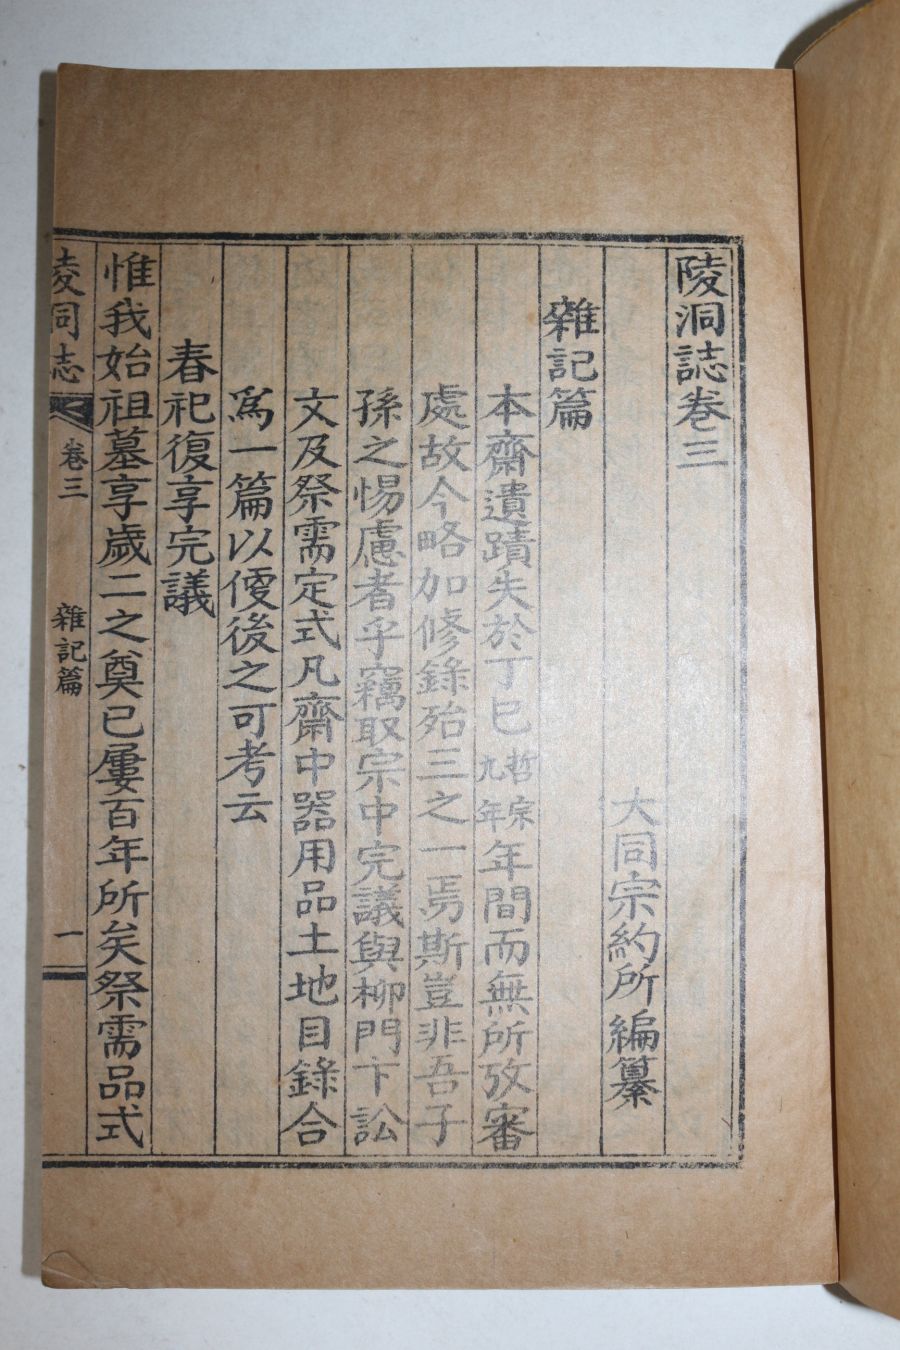 陵洞誌卷三
大同宗約所編纂
雜記篇
本齋遺蹟失於丁巳哲宗九年年間而無所攷審
處故今略加修錄殆三之一焉斯豈非吾子
孫之惕慮者乎竊取宗中完議與柳門卞訟
文及祭需定式凡齋中器用品土地目錄合
爲一篇以優後之可考云
春祀復享完議
惟我始祖墓享歲二之奠已屢百年所矣祭需品式
陵洞誌
卷三
雜記篇
一